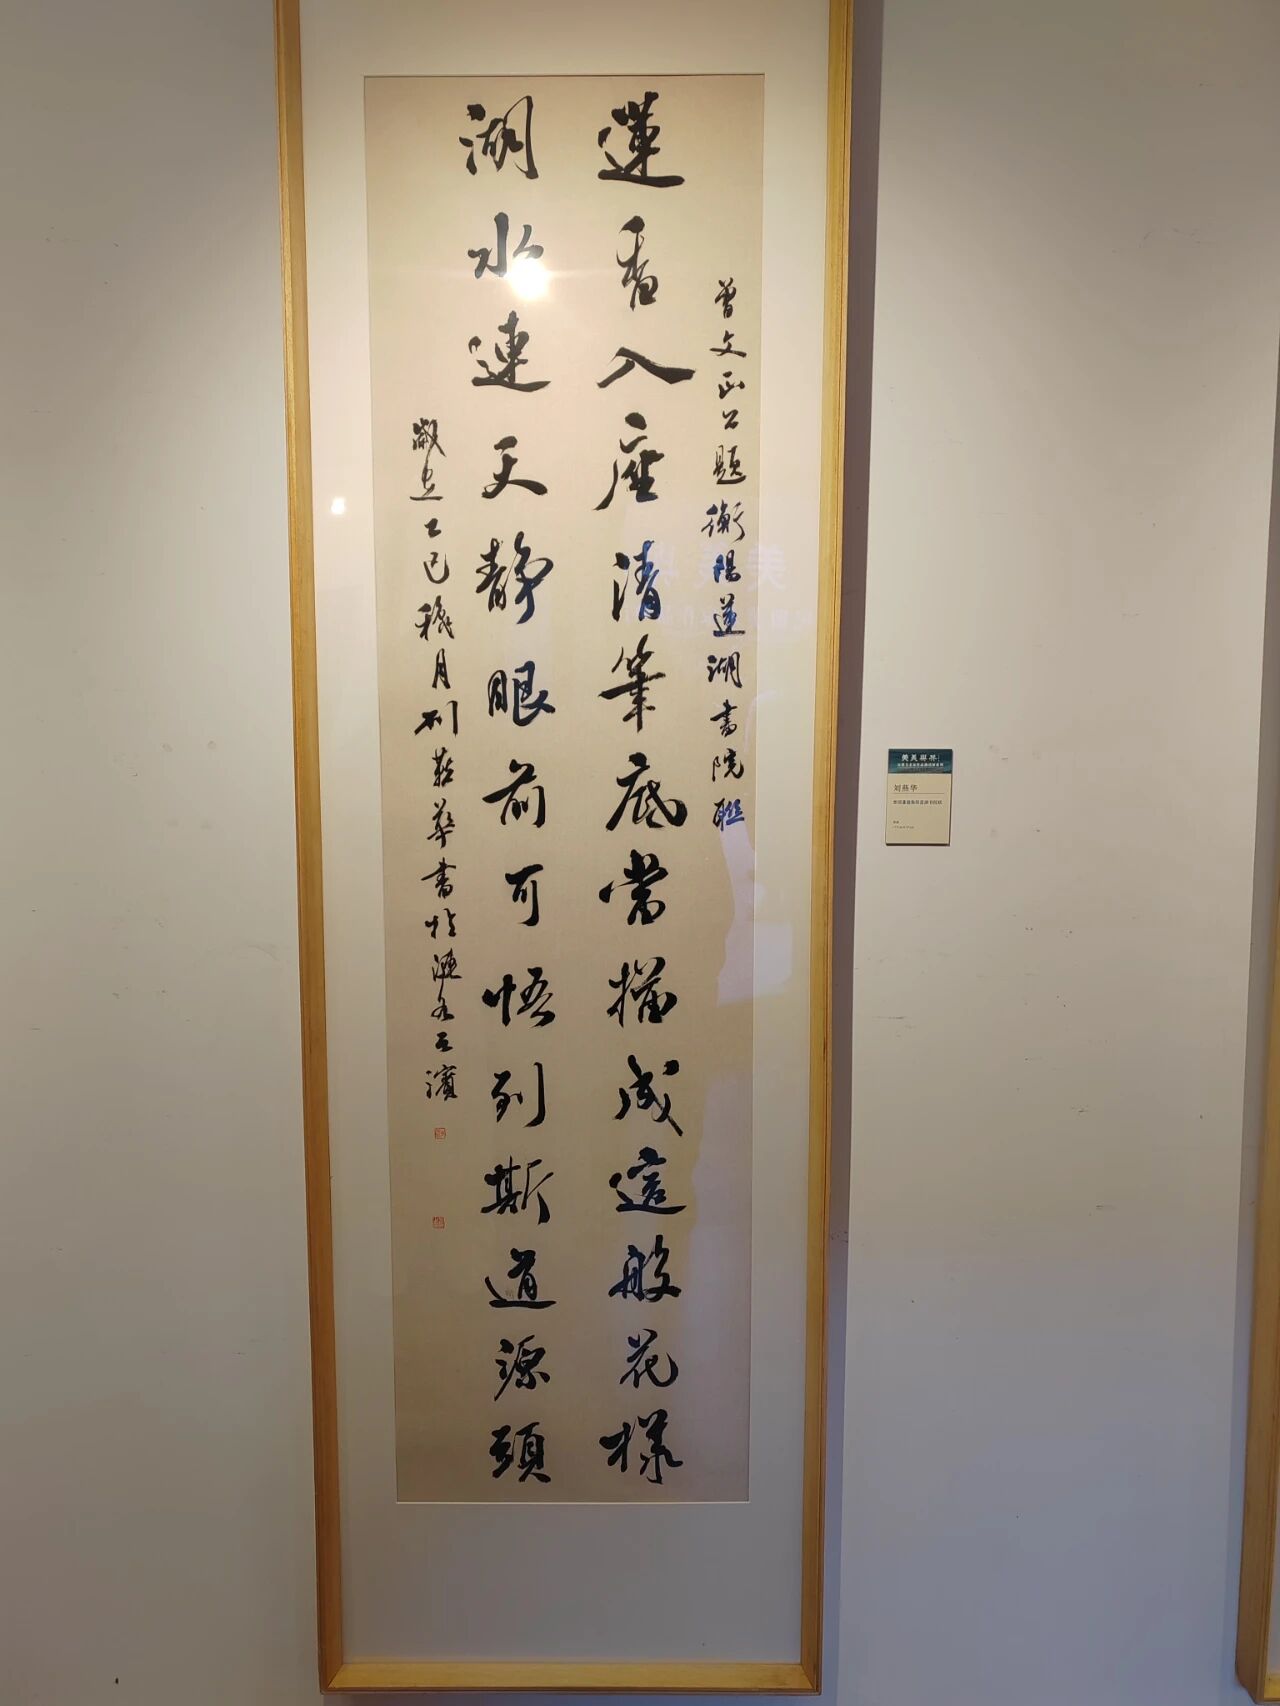 曾文正公題衡陽蓮湖書院聯
蓮香入座清筆底當描成這般花樣
湖水連天靜眼前可悟到斯道源頭
歲在乙巳穐月刘燕華書於漉水之濱
美美與共
刘燕华